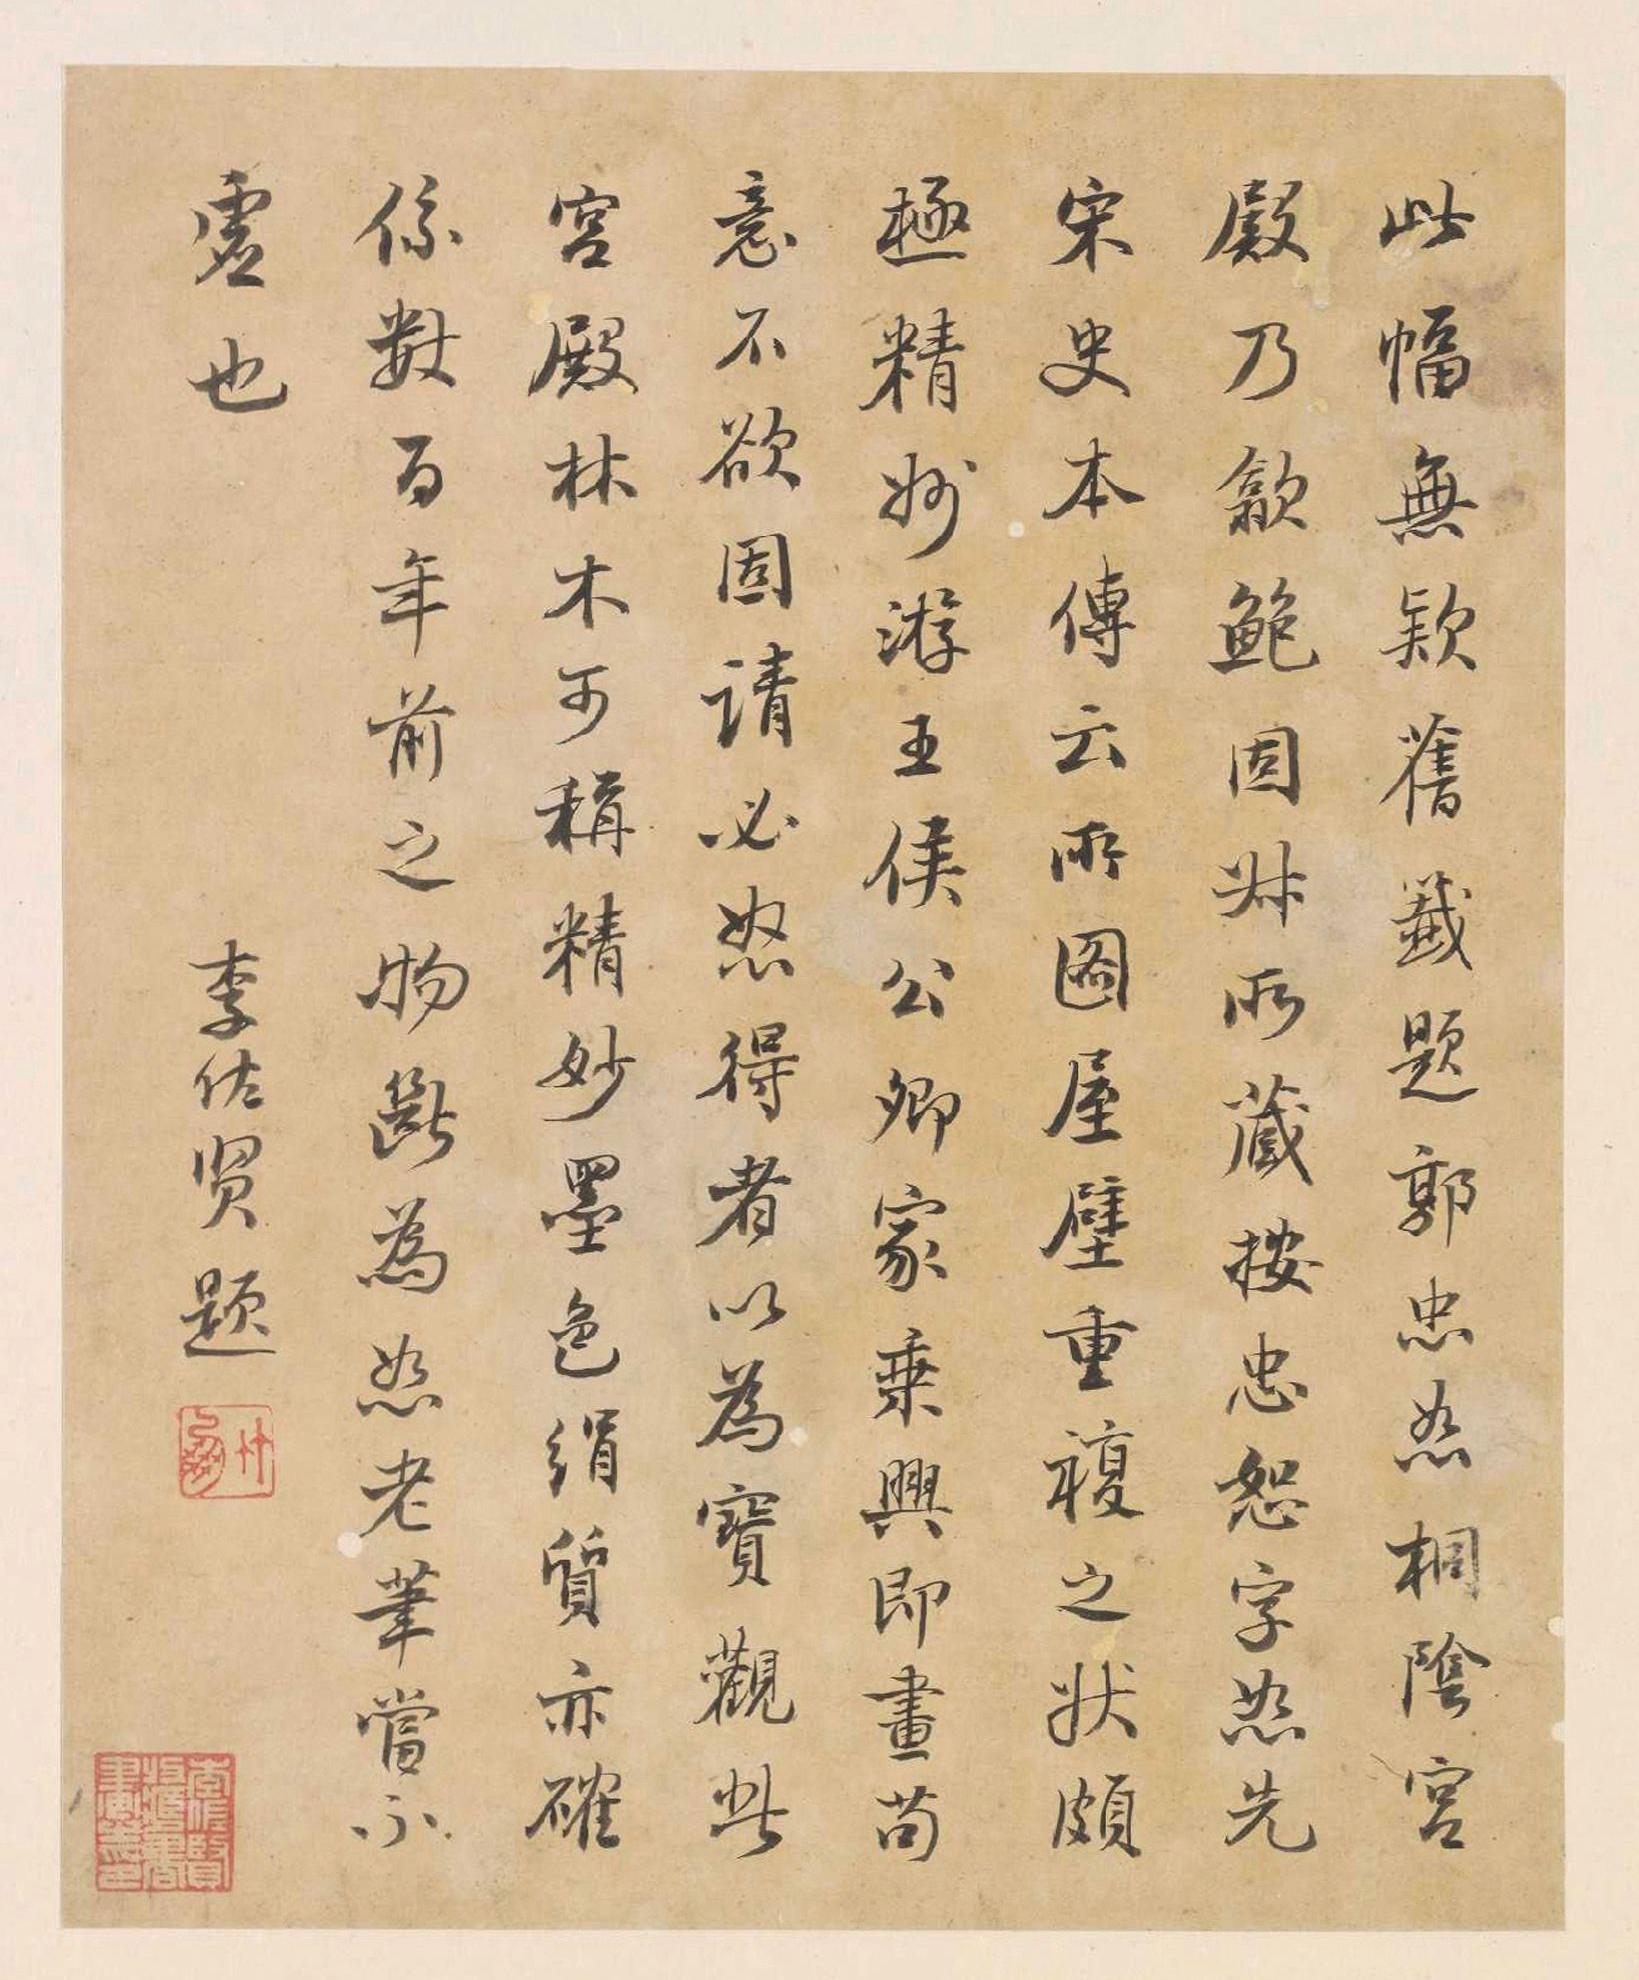 此幅無款舊籤題郭忠恕桐陰宮
殿乃歙鮑固叔所藏按忠恕字恕先
宋史本傳云所圖屋壁重複之狀頗
極精妙游王侯公卿家乘興即畫苟
意不欲固請必怒得者以為寶觀此
宮殿林木可稱精妙墨色絹質亦確
係數百年前之物斷為恕老筆當不
虛也
李佐賢題
竹朋
李佐賢收藏書畫之印